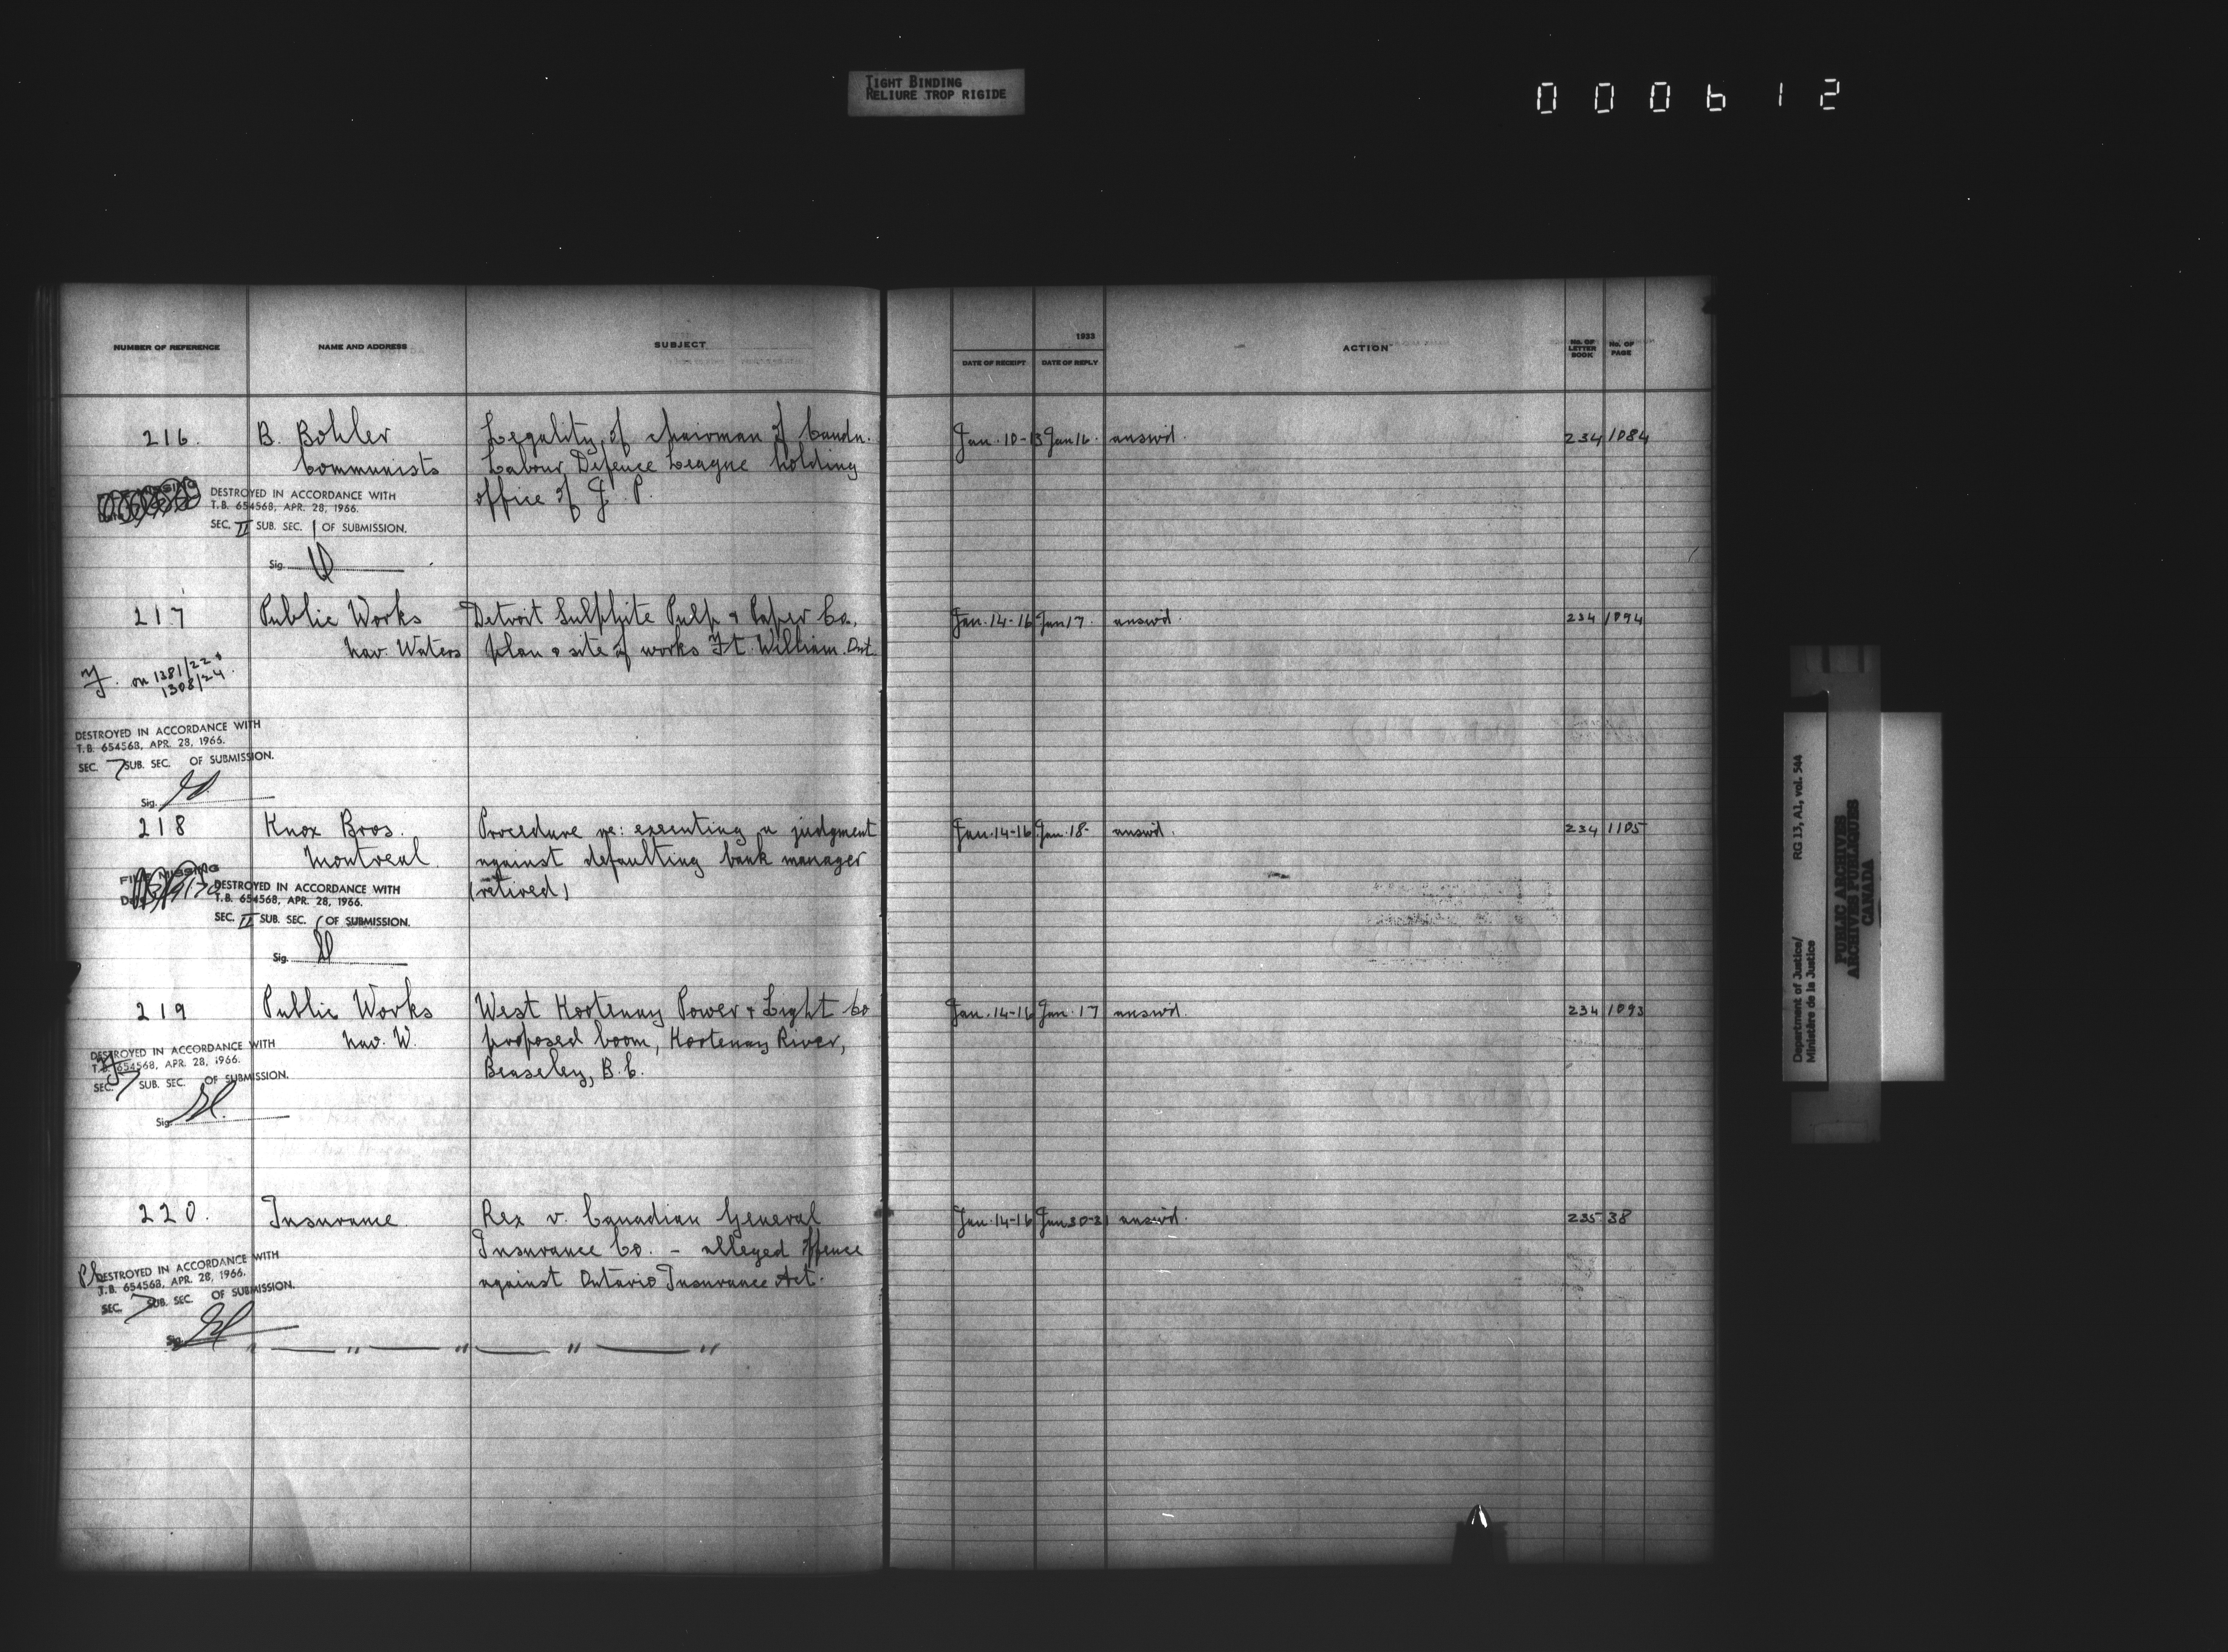 TIGHT BINDING
RELIURE TROP RIGIDE
000612
NUMBER OF REFERENCE NAME AND ADDRESS SUBJECT 1933 DATE OF RECEIPT DATE OF REPLY ACTION No. OF LETTER BOOK No. OF PAGE
216. B. Bohler Legality of chairman of Candn. Jan. 10-13 Jan 16. answd. 234 1084
Communists Labour Defence League holding
office of J. P.
DESTROYED IN ACCORDANCE WITH
T.B. 654568, APR. 28, 1966.
SEC. II SUB. SEC. 1 OF SUBMISSION.
Sig.
217 Public Works Detroit Sulphite Pulp & Paper Co., Jan. 14-16 Jan 17. answd. 234 1094
Nav. Waters plan & site of works Ft. William. Ont.
on 1381/22 &
1308/24.
DESTROYED IN ACCORDANCE WITH
T.B. 654568, APR. 28, 1966.
SEC. 7 SUB. SEC. OF SUBMISSION.
Sig.
218 Knox Bros. Procedure re: executing a judgment Jan. 14-16 Jan. 18- answd. 234 1105
Montreal. against defaulting bank manager
(retired)
FILE MISSING
Date
DESTROYED IN ACCORDANCE WITH
T.B. 654568, APR. 28, 1966.
SEC. II SUB. SEC. 1 OF SUBMISSION.
Sig.
219 Public Works West Kootenay Power & Light Co Jan. 14-16 Jan. 17 answd. 234 1093
Nav. W. proposed boom, Kootenay River,
Beaseley, B.C.
DESTROYED IN ACCORDANCE WITH
T.B. 654568, APR. 28, 1966.
SEC. 7 SUB. SEC. OF SUBMISSION.
Sig.
220. Insurance Rex v. Canadian General Jan. 14-16 Jan 30-31 answd. 235 38
Insurance Co. - alleged offence
against Ontario Insurance Act.
DESTROYED IN ACCORDANCE WITH
T.B. 654568, APR. 28, 1966.
SEC. 7 SUB. SEC. OF SUBMISSION.
Sig.
" — " — " — " — "
Department of Justice/ RG 13, A1, vol. 544
Ministère de la Justice
PUBLIC ARCHIVES
ARCHIVES PUBLIQUES
CANADA